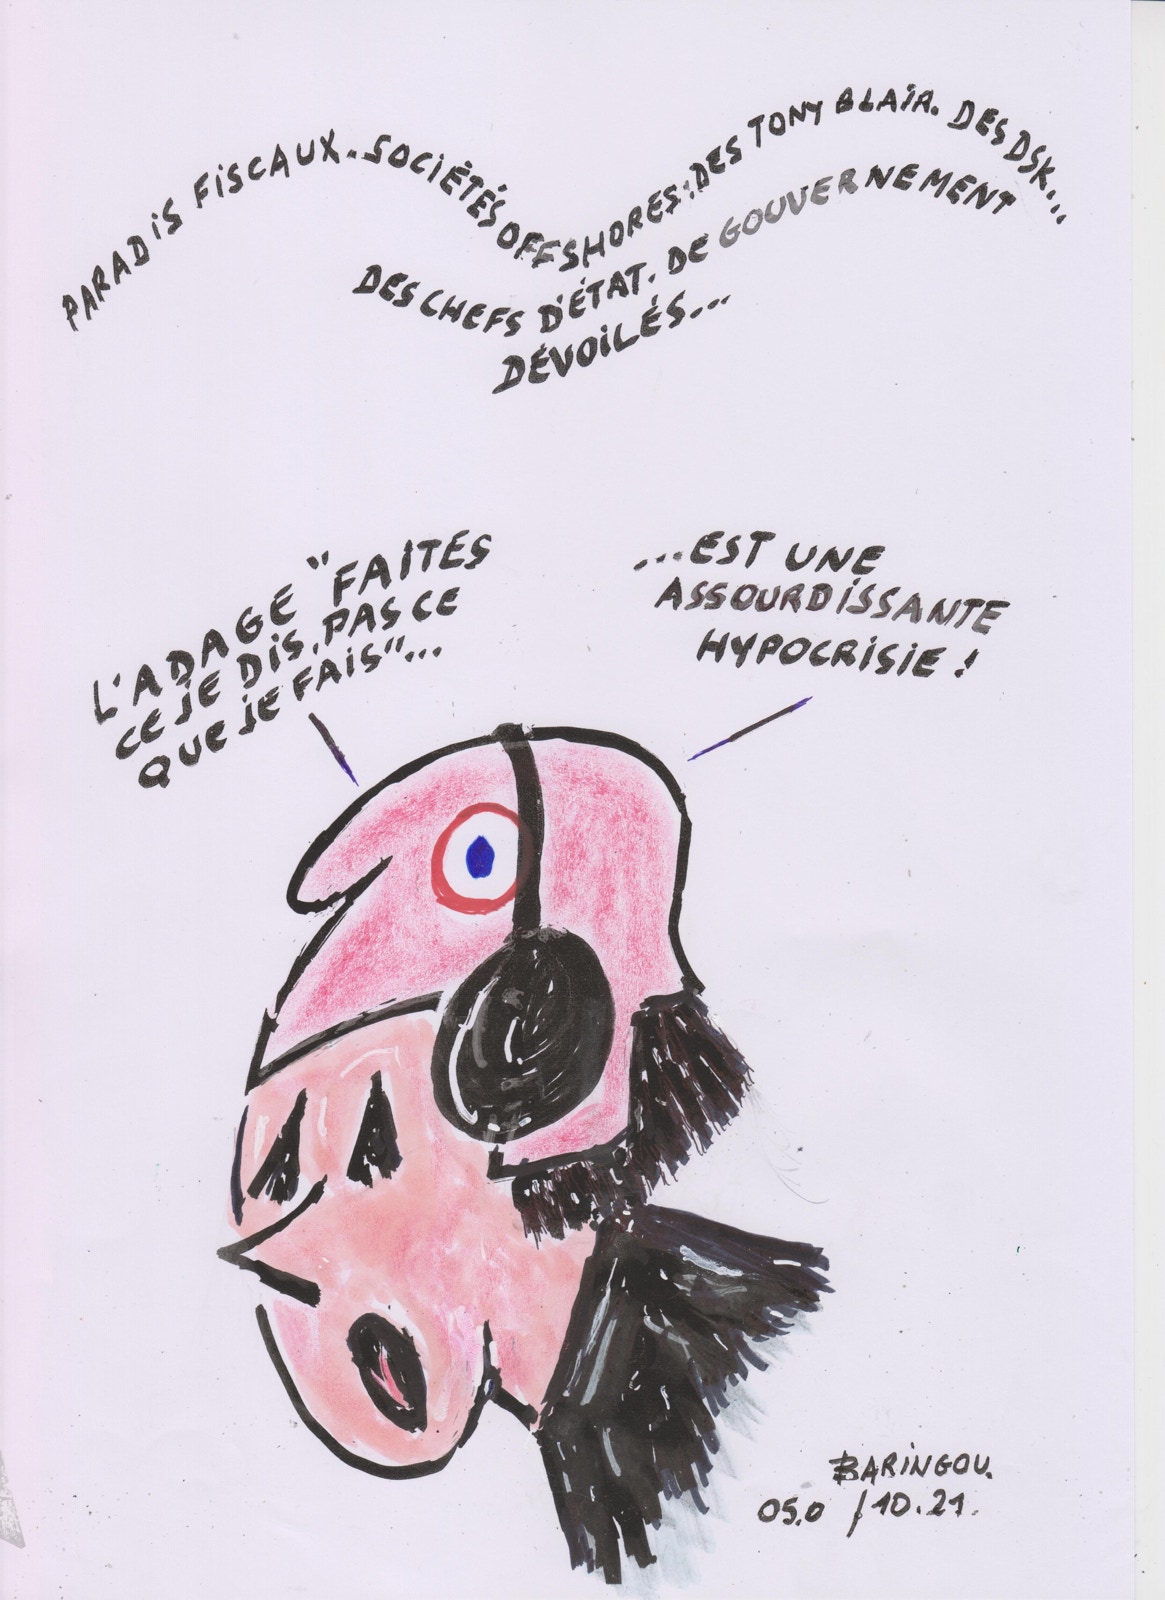 PARADIS FISCAUX. SOCIÉTÉS OFFSHORES: DES TONY BLAIR. DES DSK...
DES CHEFS D'ÉTAT. DE GOUVERNEMENT
DÉVOILÉS...
L'ADAGE "FAITES
CE JE DIS. PAS CE
QUE JE FAIS"...
...EST UNE
ASSOURDISSANTE
HYPOCRISIE !
BARINGOU.
05.0 / 10.21.